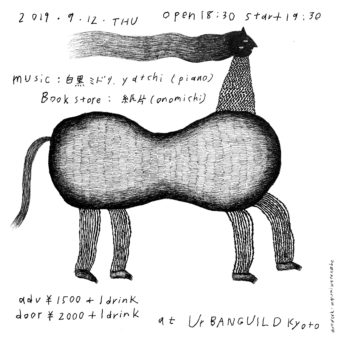 2019.9.12.THU open 18:30 start 19:30
music : 白黒ミドリ. yatchi (piano)
Book store : 紙片 (onomichi)
adv ¥1500 + 1drink
door ¥2000 + 1drink
at UrBANGUILD Kyoto